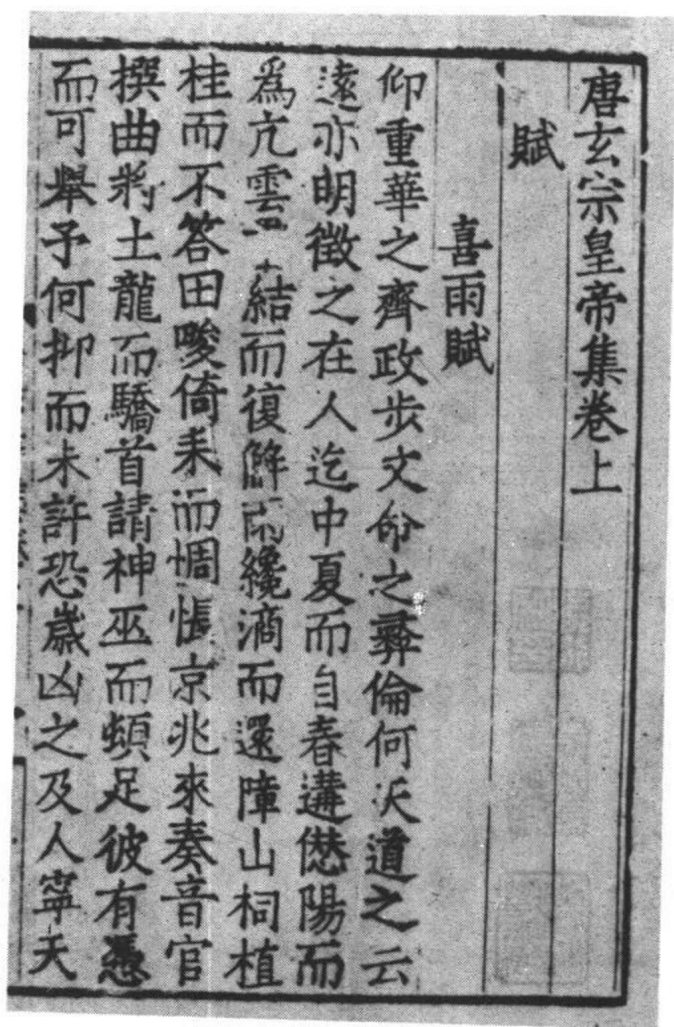 唐玄宗皇帝集卷上
賦
喜雨賦
仰重華之齊政步文命之彝倫何天道之云
遠亦明徵之在人迄中夏而自春遘愆陽而
為亢雲結而復解雨纔滴而還障山祠植
桂而不答田畯倚耒而惆悵京兆來奏音官
撰曲將土龍而驕首請神巫而頓足彼有憑
而可舉予何抑而未許恐歲凶之及人寧天